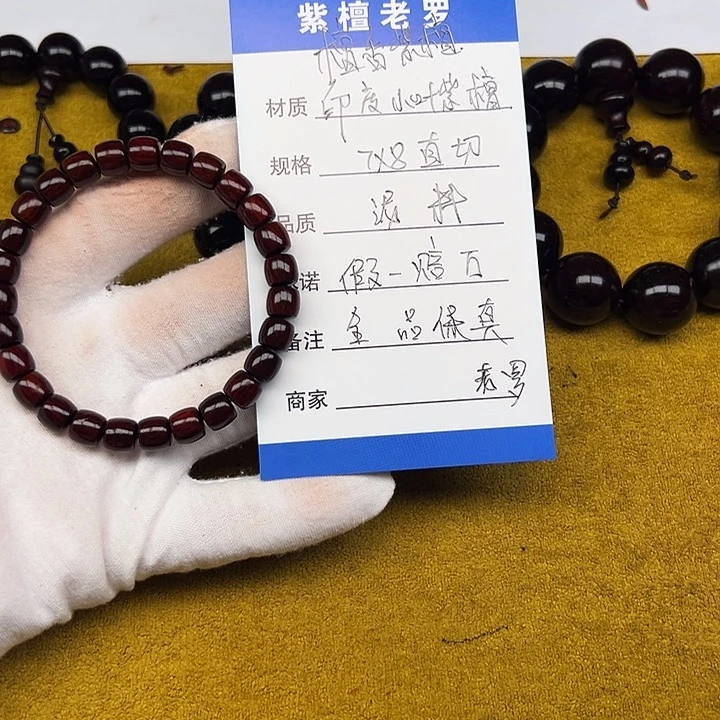 紫檀老罗
檀香紫檀
材质 印度小叶紫檀
规格 7X8直切
品质 泥料
承诺 假一赔百
备注 全品保真
商家 老罗